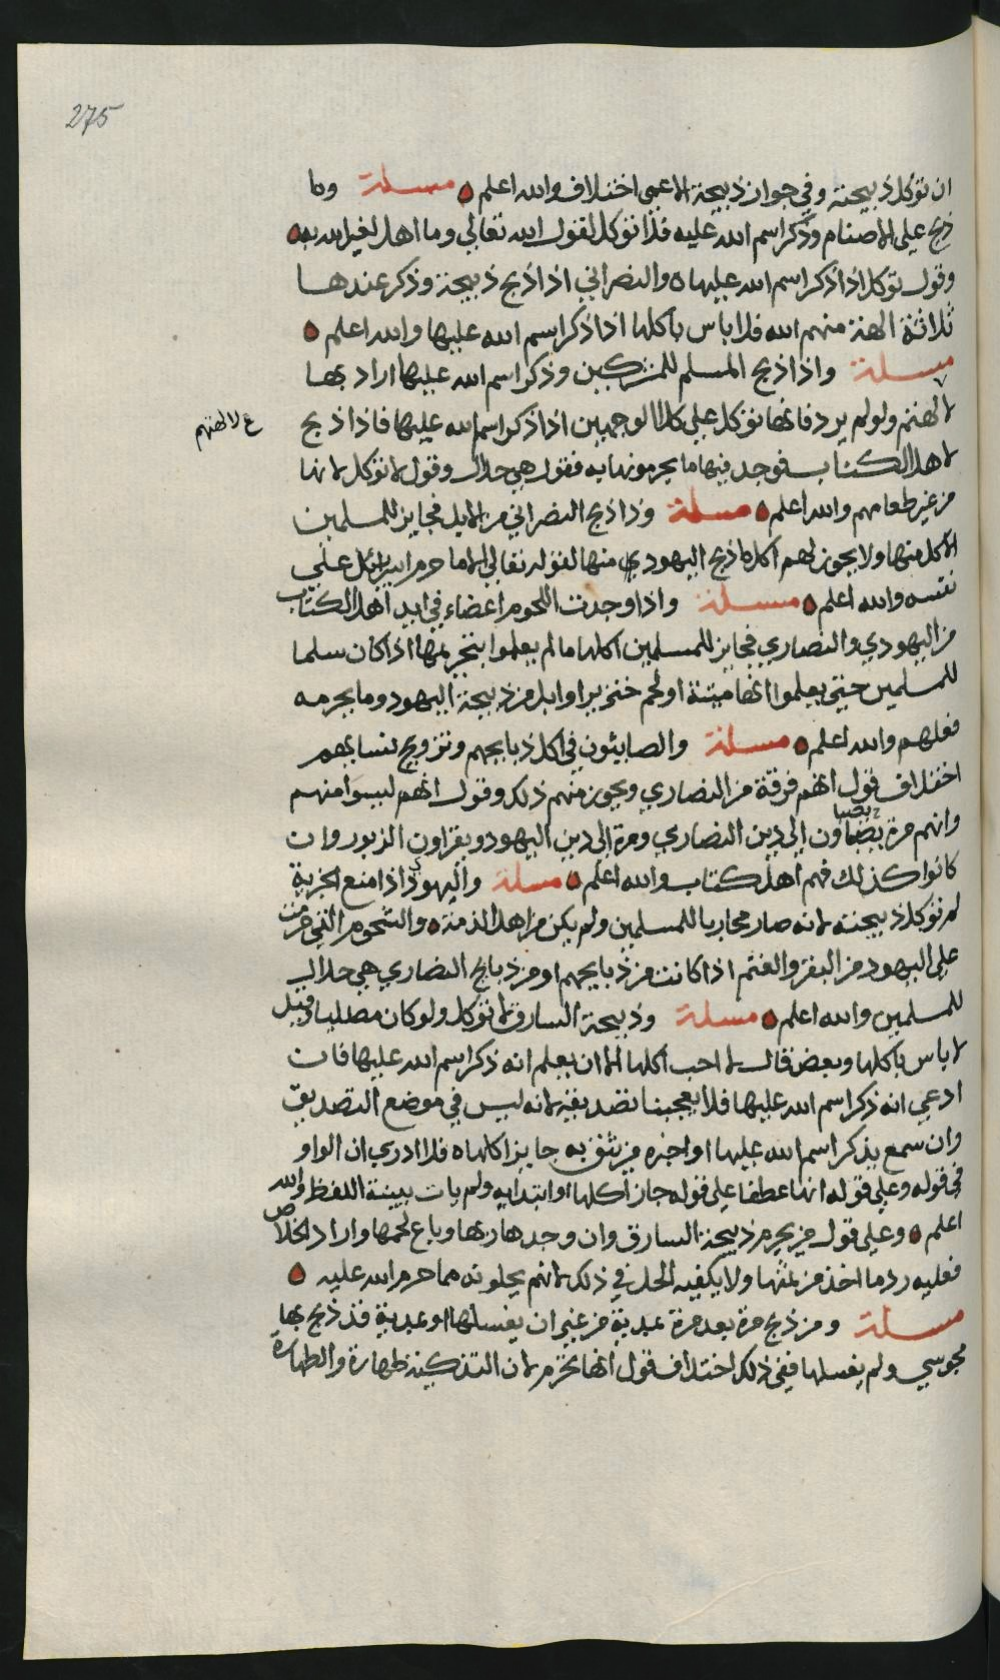 275
ان توكل ذبيحته وفي جواز ذبيحة الاعمى اختلاف والله اعلم مسئلة وما
ذبح على الاصنام وذكر اسم الله عليه فلا توكل لقول الله تعالي وما اهل لغير الله به
وقول توكل اذا ذكر اسم الله عليها ه والنصراني اذا ذبح ذبيحة وذكر عندها
ثلاثة الهة منهم الله فلا باس باكلها اذا ذكر اسم الله عليها والله اعلم
مسئلة واذا ذبح المسلم للمشركين وذكر اسم الله عليها اراد بها
لالهتم ولو لم يرد فانها توكل علي كلا الوجهين اذا ذكر اسم الله عليها فاذا ذبح
ع لالهتهم
لاهل الكتاب فوجد فيها ما يحرمونها به فقول هي حلال وقول لا توكل لانها
من غير طعامهم والله اعلم مسئلة وذا ذبح النصراني من الابل فجايز للمسلمين
الاكل منها ولا يجوز لهم اكل ما ذبح اليهودي منها لقوله تعالي الا ما حرم اسرائل علي
نفسه والله اعلم مسئلة واذا وجدت اللحوم اعضاء في ايد اهل الكتاب
من اليهودي والنصاري فجايز للمسلمين اكلها ما لم يعلموا بتحريمها اذا كان سلما
للمسلمين حتي يعلموا انها ميتة او لحم خنزير او ابل من ذبيحة اليهود وما يحرمه
فعلهم والله اعلم مسئلة والصابئون في اكل ذبايحهم وتزويج نسايهم
اختلاف قول انهم فرقة من النصاري ويجوز منهم ذلك وقول انهم ليسوا منهم
وانهم مرة يصباون الي دين النصاري ومرة الي دين اليهود ويقراون الزبور وان
كانوا كذلك فهم اهل كتاب والله اعلم مسئلة واليهودي اذا منع الجزية
لم توكل ذبيحته لانه صار محاربا للمسلمين ولم يكن من اهل الذمة والشحوم التي حرمت
علي اليهود من البقر والغنم اذا كانت من ذبايحهم او من ذبايح النصاري هي حلال
للمسلمين والله اعلم مسئلة وذبيحة السارق لا توكل ولو كان مصليا وقيل
لا باس باكلها وبعض قال لا احب اكلها الا ان يعلم انه ذكر اسم الله عليها فان
ادعي انه ذكر اسم الله عليها فلا يعجبنا تصديقه لانه ليس في موضع التصديق
وان سمع يذكر اسم الله عليها او اخبره من يثق به جايز اكلها ه فلا ادري ان الواو
في قوله وعلي قوله انها عطفا علي قوله جاز اكلها او ابتدا به ولم يات ببينة اللفظ والله
اعلم وعلي قول من يحرم ذبيحة السارق وان وجدها ربها وباع لحمها واراد الخلاص
فعليه رد ما اخذ من ثمنها ولا يكفيه الحل في ذلك لانهم يحلونه مما حرم الله عليه
مسئلة ومن ذبح مرة بعد مرة بمدية من غير ان يغسلها او بمدية قد ذبح بها
مجوسي ولم يغسلها ففي ذلك اختلاف قول انها تحرم لان التذكية طهارة والطهارة